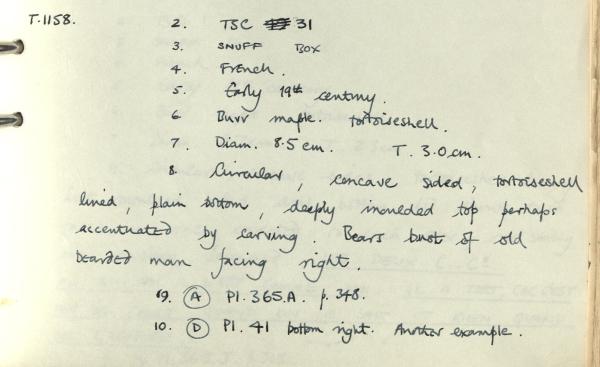 T.1158.
2. TSC 31
3. SNUFF BOX
4. French.
5. Early 19th century.
6. Burr maple. tortoiseshell.
7. Diam. 8.5 cm. T. 3.0 cm.
8. Circular, concave sided, tortoiseshell
lined, plain bottom, deeply moulded top perhaps
accentuated by carving. Bears bust of old
bearded man facing right.
9. (A) Pl. 365.A. p. 348.
10. (D) Pl. 41 bottom right. Another example.